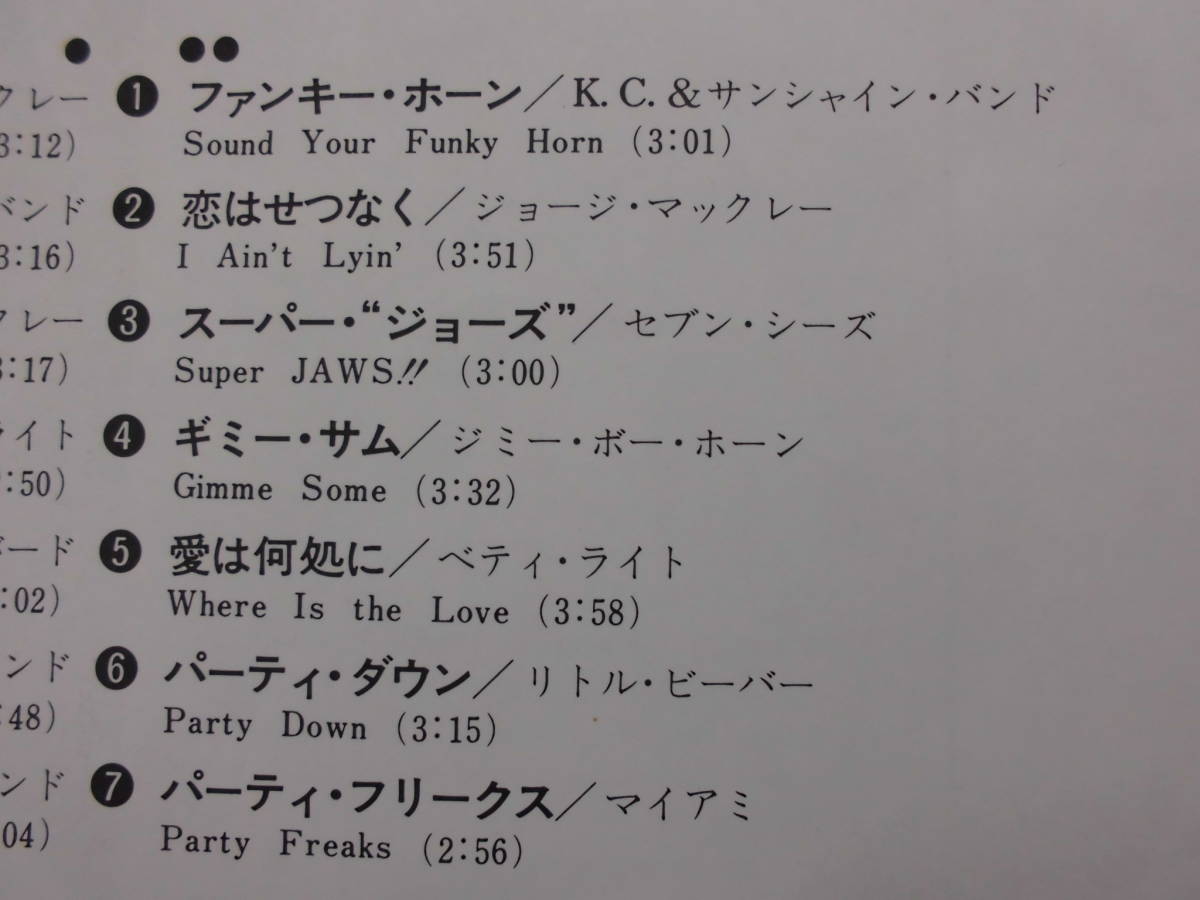 クレー
3:12)
バンド
3:16)
クレー
3:17)
ライト
:50)
ード
:02)
ンド
:48)
ンド
04)
❶ ファンキー・ホーン／K.C.&サンシャイン・バンド
Sound Your Funky Horn (3:01)
❷ 恋はせつなく／ジョージ・マックレー
I Ain't Lyin' (3:51)
❸ スーパー・“ジョーズ”／セブン・シーズ
Super JAWS!! (3:00)
❹ ギミー・サム／ジミー・ボー・ホーン
Gimme Some (3:32)
❺ 愛は何処に／ベティ・ライト
Where Is the Love (3:58)
❻ パーティ・ダウン／リトル・ビーバー
Party Down (3:15)
❼ パーティ・フリークス／マイアミ
Party Freaks (2:56)